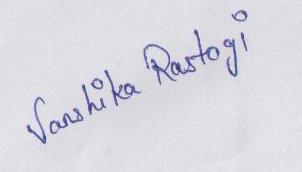 Vanshika Rastogi